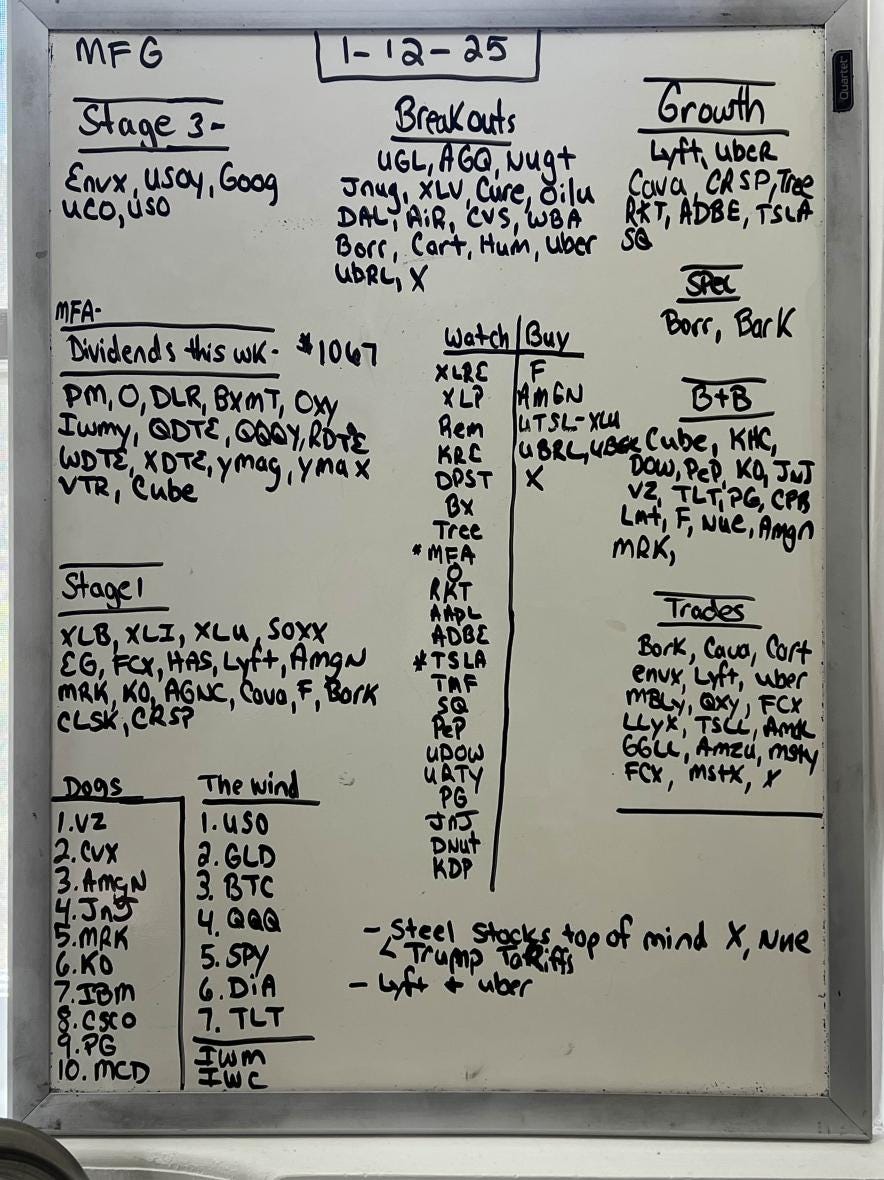 MFG
1-12-25
Quartet
Stage 3-
Envx, USOY, Goog
UCO, USO
Breakouts
UGL, AGQ, Nugt
Jnug, XLV, Cure, Oilu
DAL, AiR, CVS, WBA
Borr, Cart, Hum, Uber
UBRL, X
Growth
Lyft, UBER
Cava, CRSP, Tree
RKT, ADBE, TSLA
SQ
Spec
Borr, Bark
MFA-
Dividends this wk- $1067
PM, O, DLR, BXMT, OXY
Iwmy, QDTE, QQQY, RDTE
WDTE, XDTE, ymag, ymax
VTR, Cube
Watch Buy
XLRE F
XLP AMGN
Rem UTSL-XLU
KRE UBRL,
DPST X
BX
Tree
*MFA
O
RKT
AAPL
ADBE
*TSLA
TMF
SQ
PeP
UDOW
URTY
PG
JnJ
DNut
KDP
B+B
Cube, KHC,
DOW, PeP, KO, JNJ
VZ, TLT, PG, CPB
Lmt, F, Nue, Amgn
MRK,
Stage 1
XLB, XLI, XLU, SOXX
EG, FCX, HAS, Lyft, Amgn
MRK, KO, AGNC, Cava, F, Bark
CLSK, CRSP
Trades
Bark, Cava, Cart
envx, Lyft, uber
MBLY, OXY, FCX
LLYX, TSLL,
GGLL, Amzu, msty
FCX, mstx, X
Dogs
1. VZ
2. CVX
3. AmgN
4. JnJ
5. MRK
6. KO
7. IBm
8. CSCO
9. PG
10. MCD
The wind
1. USO
2. GLD
3. BTC
4. QQQ
5. SPY
6. DiA
7. TLT
IWM
IWC
- Steel Stocks top of mind X, Nue
Trump Tariffs
- Lyft + uber